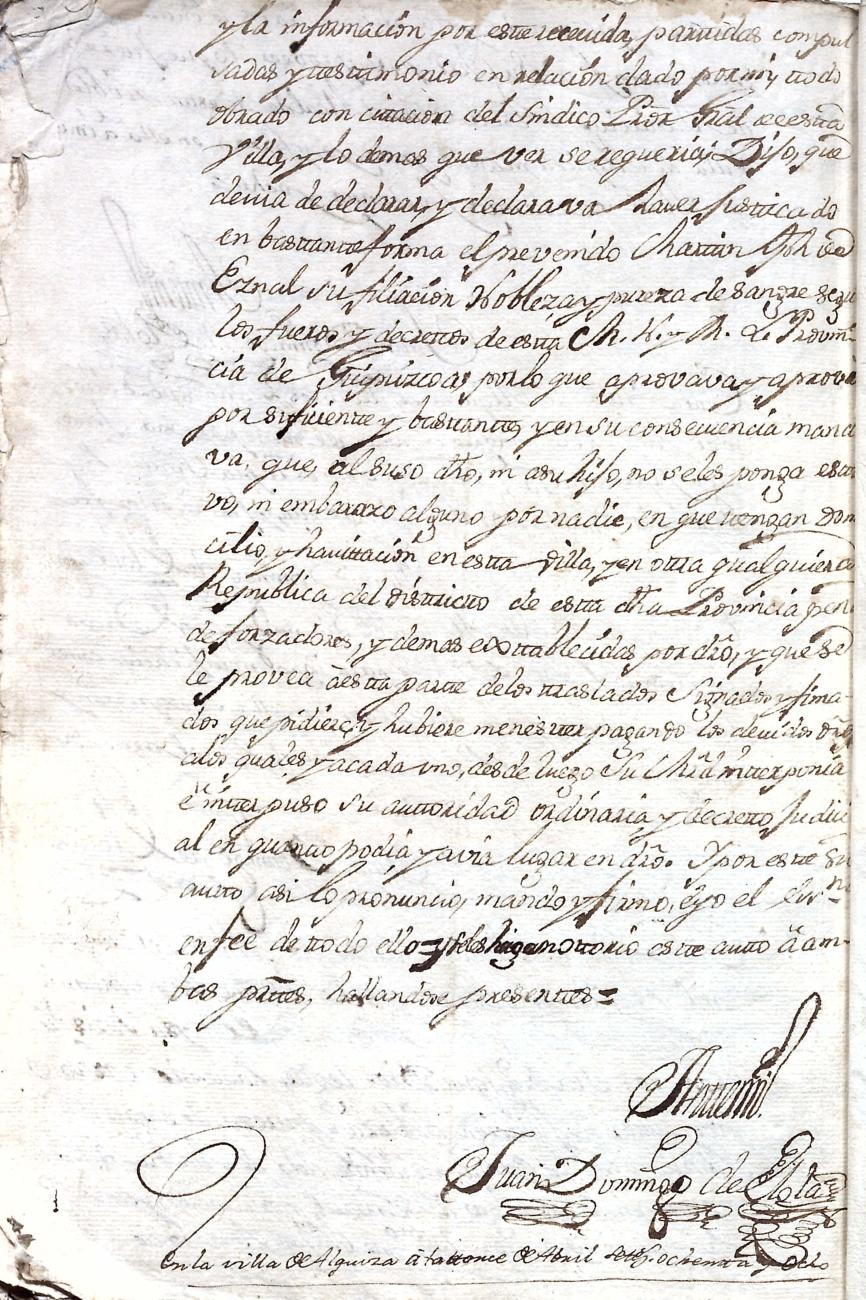 y la información por este recevida, partidas compul
sadas y testimonio en relación dado por mi, todo
obrado con citación del Sindico Pror Gral de esta
Villa, y lo demas que ver se requeria; Dijo, que
devia de declarar, y declarava haver justticado
en bastante forma el prevenido Martin Jph de
Eznal su filiación Nobleza y pureza de sangre segu
los fueros y decretos de esta M. N. y M. L. Provin-
cia de Guipúzcoa; por lo que aprovava y aprovo
por suficiente y bastante, y en su consecuencia manda
va, que, al suso dho, ni a su hijo, no se les ponga estor
vo, ni embarazo alguno por nadie, en que tengan domi
cilio, y havittación en esta Villa, y en otra qualquiera
Republica del districto de esta dha Provincia pena
de forzadores, y demas establecidas por dro, y que se
le provea a esta parte de los traslados signados y firma-
dos que pidiere, y hubiere menester pagando los devidos dros
a los quales y a cada uno, desde luego Su Mrd interponia
e interpuso su autoridad ordinaria y decreto Judici
al en quanto podia y avia lugar en dro. Y por este su
auto asi lo pronuncio, mando y firmo, e yo el Essno
en fee de todo ello y seles higa nottorio este auto a am-
bas partes, hallandose presentes =
Antemi
Juan Domingo de
en la villa de Alquiza a catorce de Abril ochenta y ocho